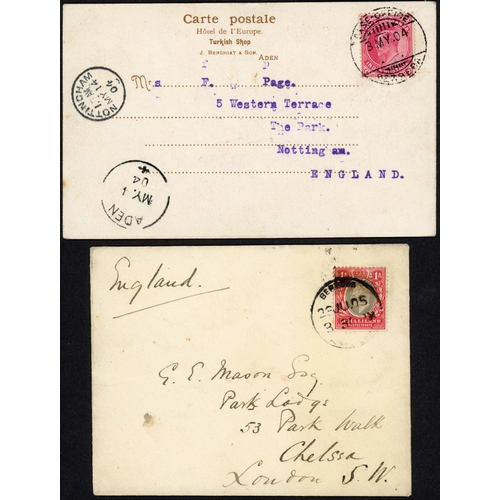 Carte postale
Hôtel de l'Europe.
Turkish Shop
J. Benghiat & Son,
ADEN
3 MY.04
BERBERA
NOTTINGHAM
MY
04
Mrs F. Page.
5 Western Terrace
The Park.
Notting am.
ENGLAND.
ADEN
MY. 1
04
England.
BERBERA
JU 05
1A
G. E. Mason Esq
Park Lodge
53 Park Walk
Chelsea
London S.W.